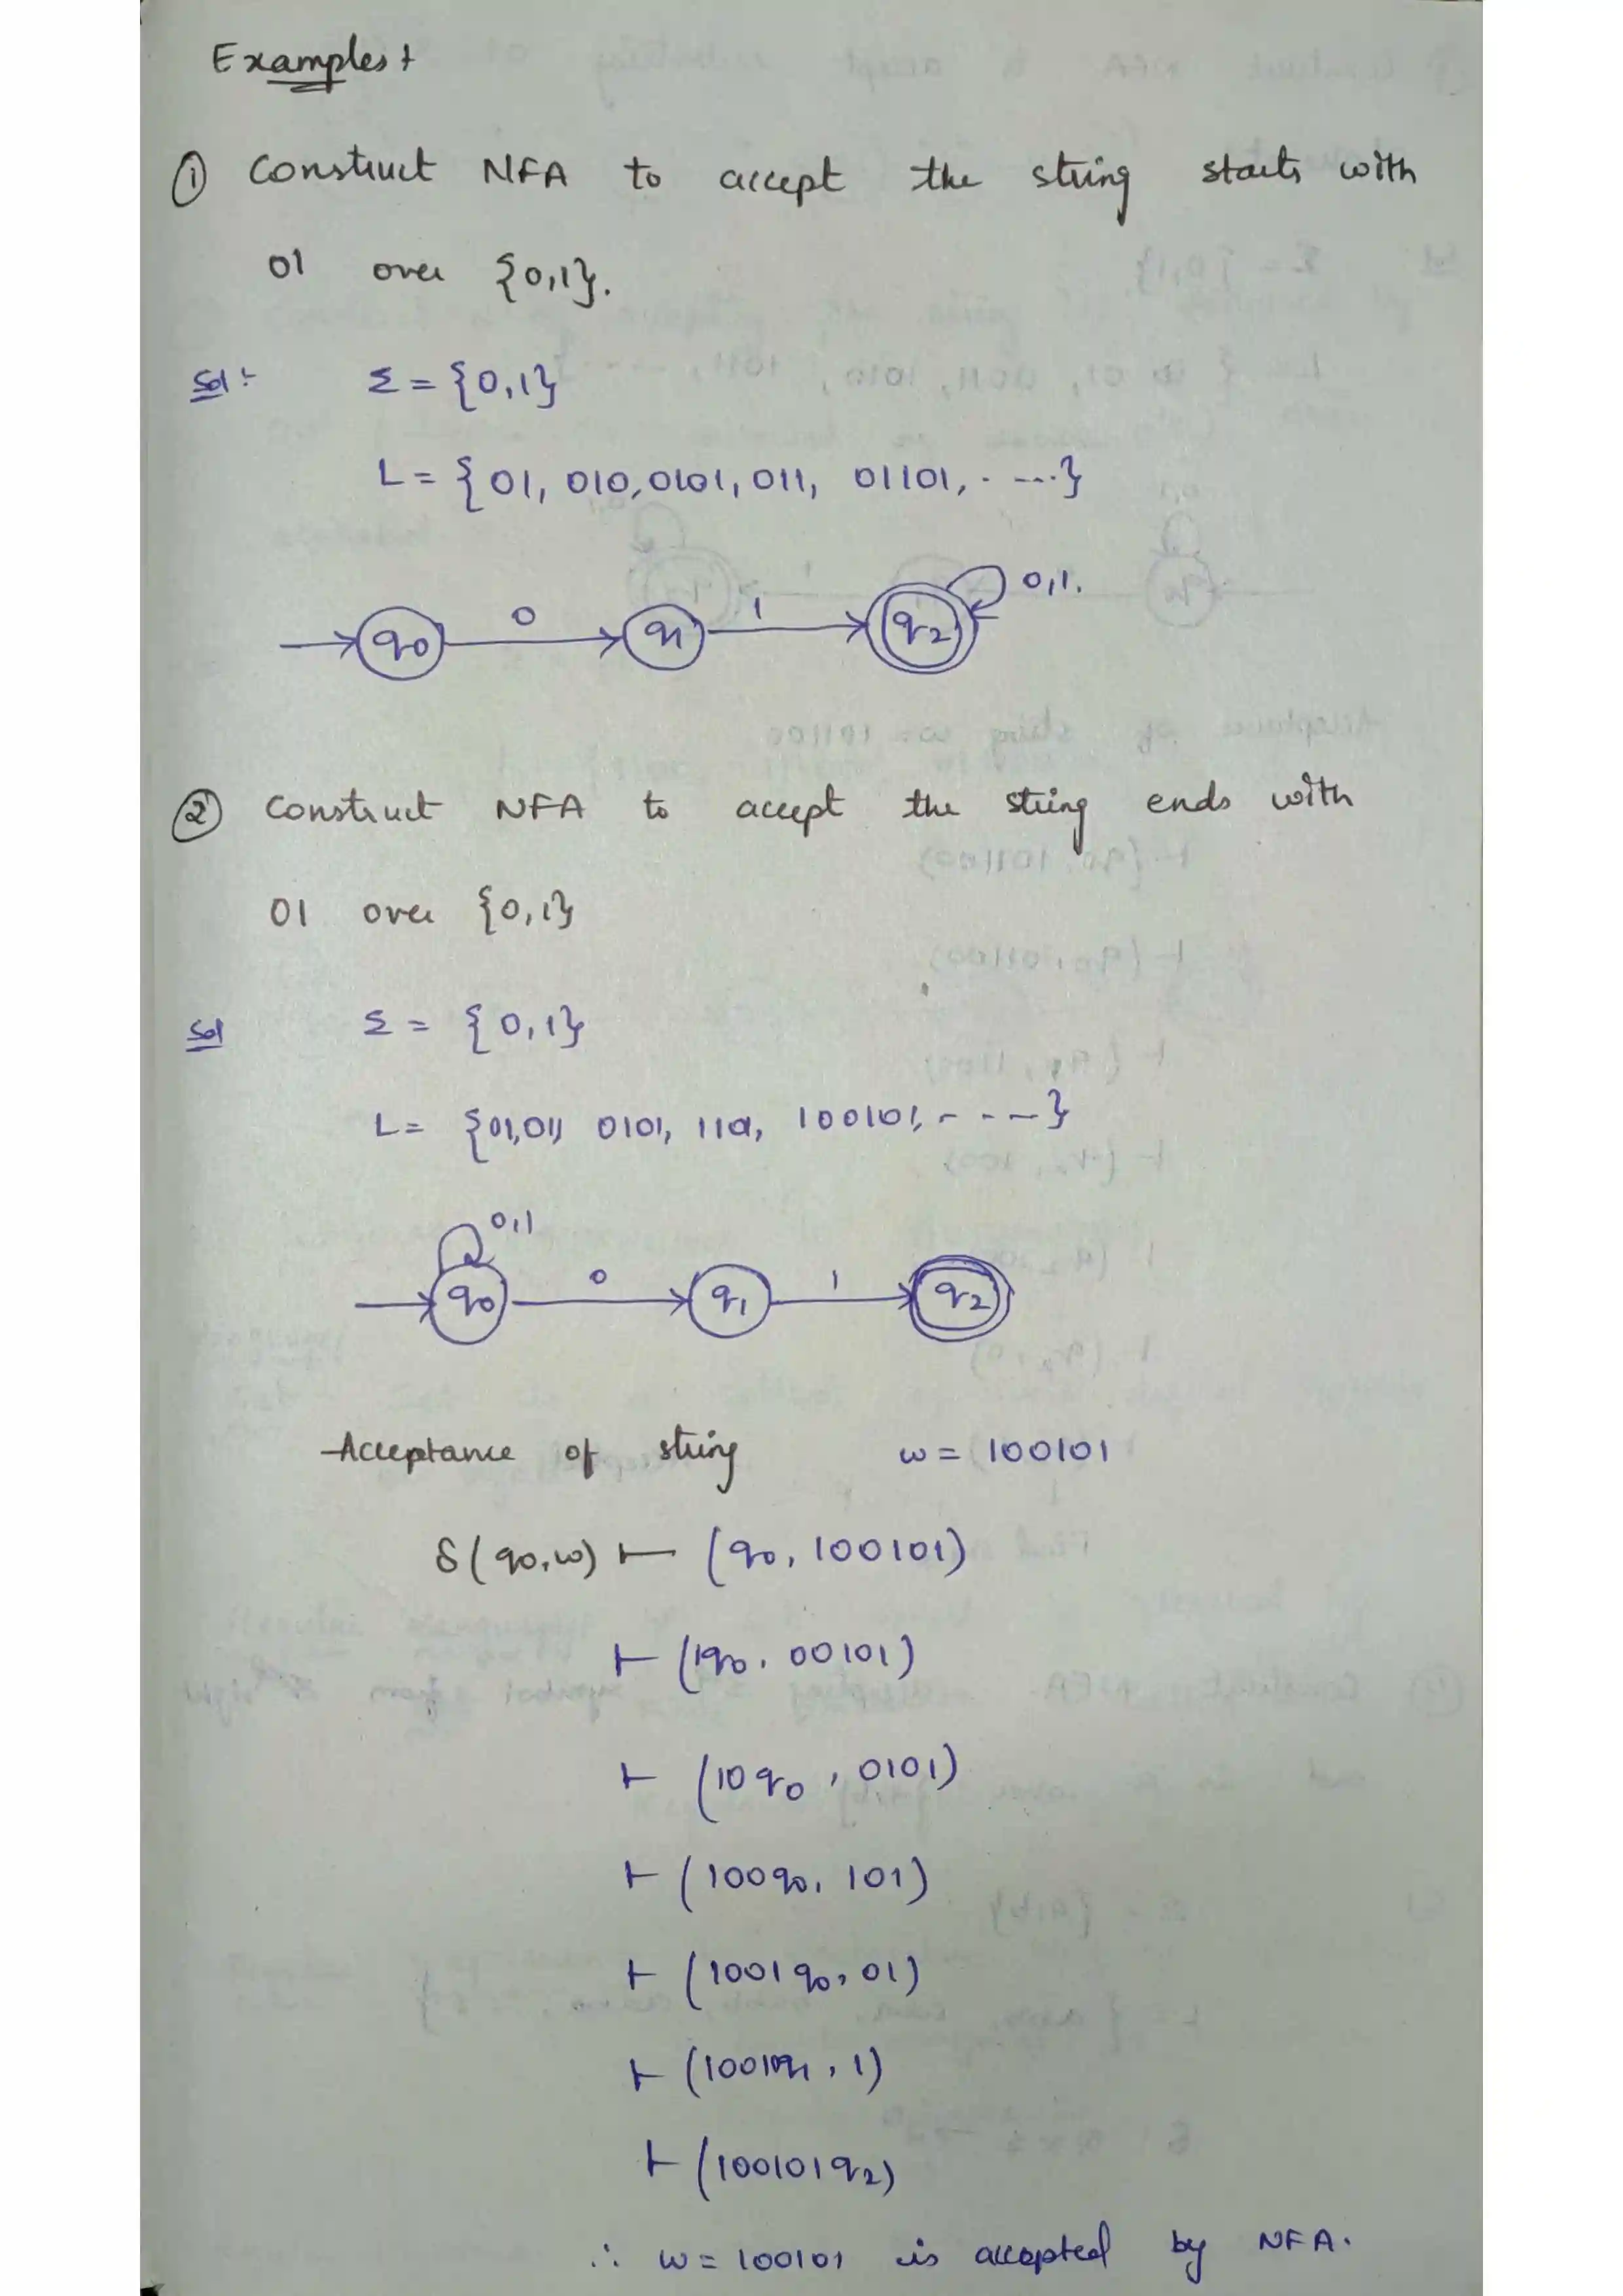 Examples :
① Construct NFA to accept the string starts with
01 over {0,1}.
Sol :- Σ = {0,1}
L = {01, 010, 0101, 011, 01101, . ....}
0,1.
→ q0 0 → q1 1 → q2
② Construct NFA to accept the string ends with
01 over {0,1}
Sol Σ = {0,1}
L = {01, 0101, 1101, 100101, - - - -}
0,1
→ q0 0 → q1 1 → q2
Acceptance of string w = 100101
δ(q0,w) ⊢ (q0, 100101)
⊢ (1q0, 00101)
⊢ (10q0, 0101)
⊢ (100q0, 101)
⊢ (1001q0, 01)
⊢ (10010q1, 1)
⊢ (100101q2)
∴ w = 100101 is accepted by NFA.